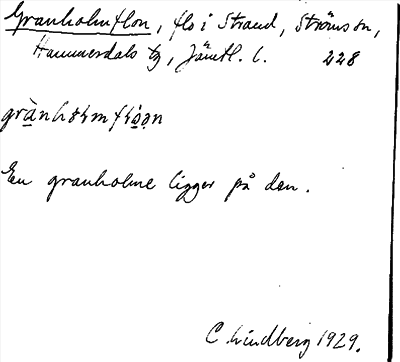 Granholmflon, flo i Strand, Ströms sn,
Hammerdals tg, Jämtl. l. 228
En granholme ligger på den.
C. Lindberg 1929.